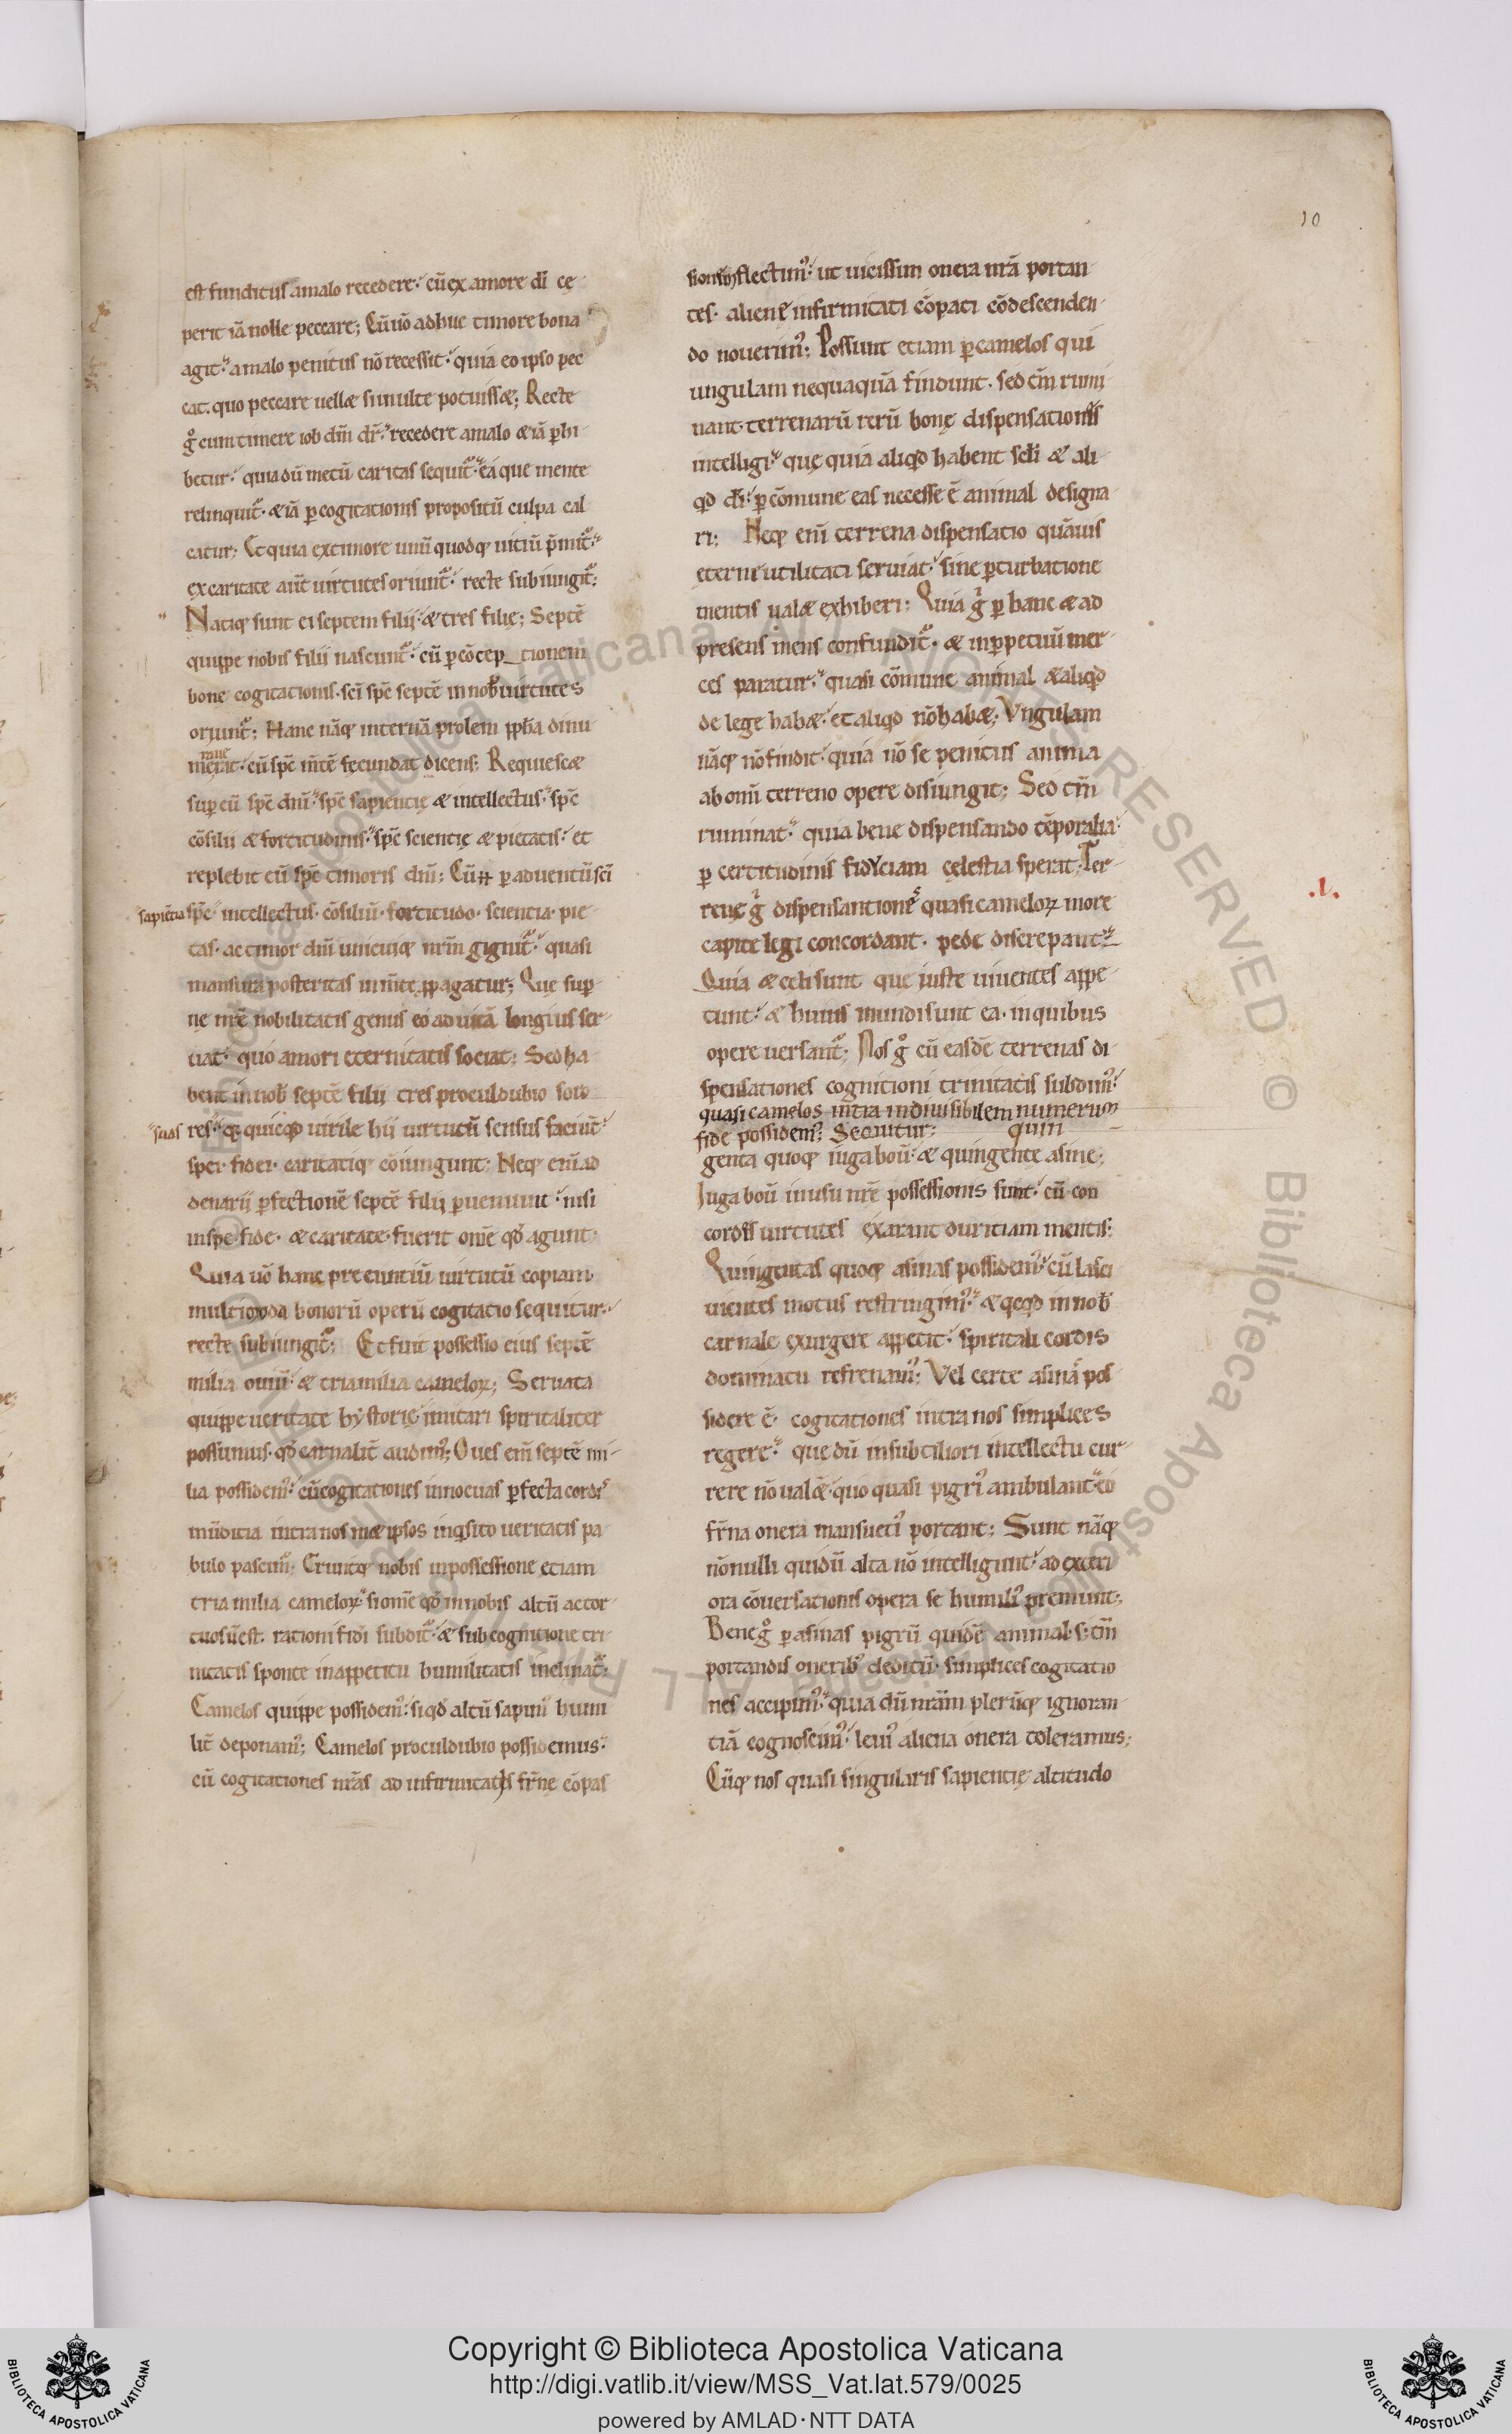 10
est funditus amalo recedere· cū ex amore dī cę
perit iā nolle peccare; Cū ūo adhuc timore bona
agit· amalo penitus nō recessit· quia eo ipso pec
cat· quo peccare uellæ si inulte potuissæ; Recte
gͦ cum timere iob dm̄ dr̄· recedere amalo æiā phi
betur· quia dū metū caritas sequit᷑· ea que mente
relinquit᷑· æiā ꝑ cogitationis propositū culpa cal
catur; Et quia ex timore unū quodqꝫ uitiū p̄mit᷑·
ex caritate aūt uirtutes oriunt᷑· recte subiungit᷑;
Natiqꝫ sunt ei septem filii· & tres filię; Septē
quippe nobis filii nascunt᷑· cū ꝑ cōcep_tionem
bone cogitationis· sc̄i sp̄c septē in nob̄ uirtutes
oriunt᷑; Hanc nāqꝫ internā prolem ꝓph̄a dinu
merat· cū sp̄c m̄tē fecundat dicens; Requiescæ
sup eū sp̄c dn̄i· sp̄c sapientię & intellectus· sp̄c
cōsilii & fortitudinis· sp̄c scientię & pietatis· et
replebit eū sp̄c timoris dn̄i; Cū ꝑ aduentū sc̄i
sapiētia sp̄c· intellectus· cōsiliū· fortitudo· scientia· pie
tas· ac timor dn̄i unicuiqꝫ nrm̄ gignit᷑· quasi
mansura posteritas in m̄te ꝓpagatur; Que sup
ne nrē nobilitatis genus eo ad uitā longius ser
uat· quo amori eternitatis sociat; Sed ha
bent in nob̄ septē filii tres proculdubio soro
suas res· qꝫ quicqd uirile hii uirtutū sensus faciūt·
spei· fidei· caritatiqꝫ cōiungunt; Neqꝫ enī ad
denarii ꝑfectionē septē filii ꝑueniunt· nisi
in spe· fide· & caritate· fuerit om̄e qd agunt·
Quia ūo hanc preeuntiū uirtutū copiam
multimoda bonorū operū cogitatio sequitur·
recte subiungit᷑; Et fuit possessio eius septē
milia ouiū· & tria milia cameloꝝ; Seruata
quippe ueritate hystorię imitari spiritaliter
possumus· qd carnalit̄ audim᷒; Oues enī septē mi
lia possidem᷒· cū cogitationes innocuas ꝑfecta cordis
mūditia intra nos mæ ipsos inqsito ueritatis pa
bulo pascim᷒; Eruntqꝫ nobis in possessione etiam
tria milia cameloꝝ· si om̄e qd in nobis altū ac tor
tuosū est· rationi fidi subdit᷑· & sub cognitione tri
nitatis sponte in appetitu humilitatis inclinat᷑;
Camelos quippe possidem᷒· si qd altū sapim᷒ humi
lit̄ deponam᷒; Camelos proculdubio possidemus·
cū cogitationes nrās ad infirmitatis fr̄nę cōpas
sionem flectim᷒· ut uicissim onera nrā portan
tes· alienę infirmitati cōpati cōdescenden
do nouerim᷒; Possunt etiam ꝑ camelos qui
ungulam nequaquā findunt· sed tm̄ rumi
nant· terrenarū rerū bonę dispensationis
intelligi· quę quia aliqd habent scl̄i & ali
qd dī· ꝑ cōmune eas necesse ē animal designa
ri; Neqꝫ enī terrena dispensatio quāuis
eternę utilitati seruiat· sine ꝑturbatione
mentis ualæ exhiberi; Quia g̊ ꝑ hanc & ad
presens mens confundit᷑· & in ꝑpetuū mer
ces paratur· quasi cōmune animal & aliqd
de lege habæ· et aliqd nō habæ; Vngulam
nāqꝫ nō findit· quia nō se penitus anima
ab omi terreno opere disiungit; Sed tm̄
ruminat· quia bene dispensando tēporalia
ꝑ certitudinis fidYciam cęlestia sperat; Ter
renę g̊ dispensantionē quasi cameloꝝ more
capite legi concordant· pede discrepant·
Quia & celi sunt que iuste uiuentes appe
tunt· & huius mundi sunt ea· in quibus
opere uersant᷑; Nos gͦ cū easdē terrenas di
spensationes cognitioni trinitatis subdim᷒·
quasi camelos intra indiuisibilem numerum
fide possidem᷒; Sequitur; quin
genta quoqꝫ iuga boū· & quingentę asine;
Iuga boū in usu nrē possessionis sunt· cū con
cordis uirtutes exarant duritiam mentis;
Quingentas quoqꝫ asinas possidem᷒· cū lasci
uientes motus restringim᷒· & qcqd in nob̄
carnale exurgere appetit· spiritali cordis
dominatu refrenam᷒; Vel certe asinas pos
sidere ē· cogitationes intra nos simplices
regere· que dū in subtiliori intellectu cur
rere nō ualē· quo quasi pigri᷒ ambulant· eo
fr̄na onera mansueti᷒ portant; Sunt nāqꝫ
nōnulli qui dū alta nō intelligunt· ad exteri
ora cōuersationis opera se humili᷒ premunt;
Bene gͦ ꝑ asinas pigrū quidē animal· s; tm̄
portandis onerib᷒ deditū· simplices cogitatio
nes accipim᷒· quia dū nrām plerūqꝫ ignoran
tiā cognoscim᷒· leui᷒ aliena onera toleramus;
Cūqꝫ nos quasi singularis sapientię altitudo
.l.
Copyright © Biblioteca Apostolica Vaticana
http://digi.vatlib.it/view/MSS_Vat.lat.579/0025
powered by AMLAD·NTT DATA
BIBLIOTECA APOSTOLICA VATICANA
BIBLIOTECA APOSTOLICA VATICANA